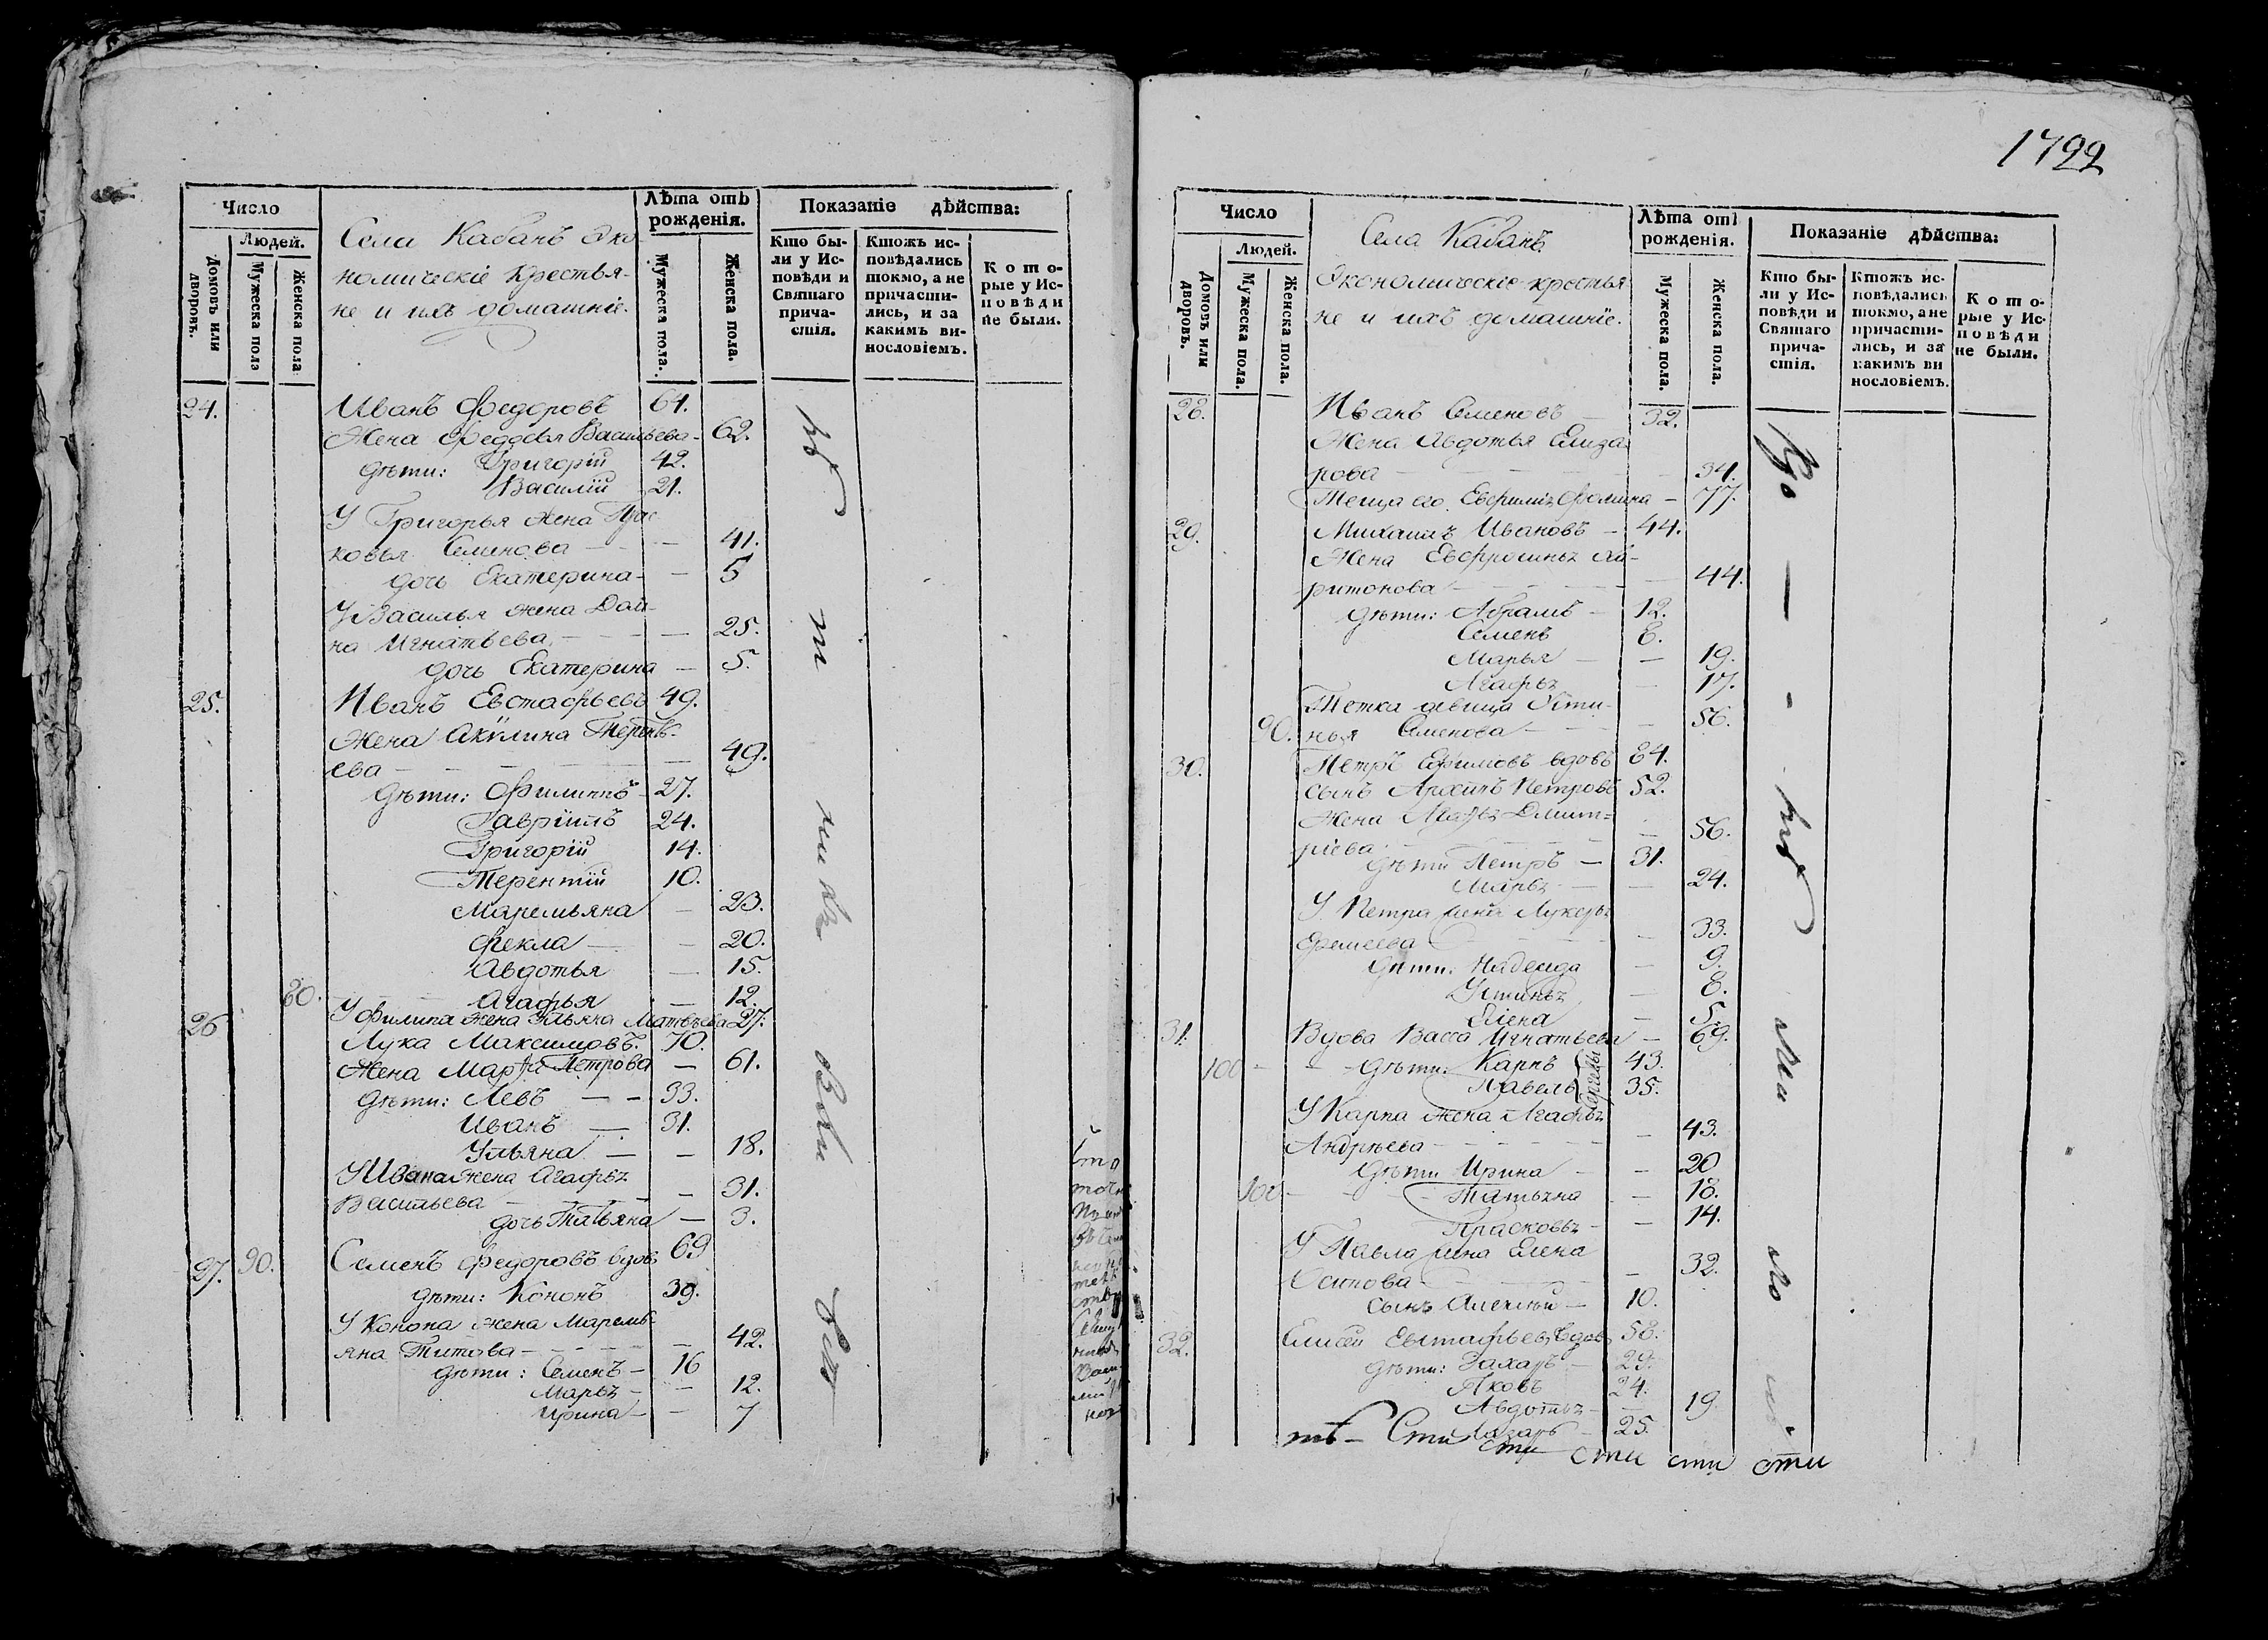 Число
Людей.
Домовъ или дворовъ.
Мужеска пола
Женска пола
Села Кабанъ Эко-
номическіе крестья-
не и ихъ домашніе.
Лѣта отъ рожденія.
Мужеска пола.
Женска пола.
Показаніе дѣйства:
Кто бы-
ли у Ис-
повѣди и
Святаго
прича-
стія.
Ктожъ ис-
повѣдались
токмо, а не
причасти-
лись, и за
какимъ ви-
нословіемъ.
Кото-
рые у Ис-
повѣди
не были.
24. Иванъ Федоровъ 64.
Жена Федосья Васильева - 62.
дѣти: Григорій 42.
Василій 21.
У Григорья жена Прас
ковья Семенова - 41.
дочь Екатерина - 5
У Василья жена Дом-
на Игнатьева - 25.
дочь Екатерина - 5.
25. Иванъ Евстафьевъ 49.
Жена Акилина
ева - 49.
дѣти: Филиппъ - 27.
Гавріилъ 24.
Григорій 14.
Терентій 10.
Маремьяна - 23.
Фекла - 20.
Авдотья - 15.
80. Агафья - 12.
У Филипа жена Ульяна Матвѣева 27.
26 Лука Максимовъ. 70.
Жена Марфа Петрова - 61.
дѣти: Левъ - 33.
Иванъ - 31.
Ульяна - 18.
У Ивана жена Агафья
Васильева - 31.
дочь Татьяна - 3.
27. 90. Семенъ Федоровъ вдовъ 69
дѣти: Кононъ 39.
У Конона жена Маремь-
яна Титова - 42.
дѣти: Семенъ - 16
Марья - 12.
Ирина - 7
1722
Число
Людей.
Домовъ или дворовъ.
Мужеска пола.
Женска пола.
Села Кабанъ
Экономическіе крестья
не и ихъ домашніе.
Лѣта отъ
рожденія.
Мужеска пола.
Женска пола.
Показаніе дѣйства:
Кто бы-
ли у Ис-
повѣди и
Святаго
прича-
стія.
Ктожъ ис-
повѣдались
токмо, а не
причасти-
лись, и за
какимъ ви
нословіемъ.
Кото-
рые у Ис-
повѣди
не были.
28. Иванъ Семеновъ - 32.
Жена Авдотья Елиза
рова - 34.
Теща его Евфимія Фомина - 77.
29. Михаилъ Ивановъ - 44.
Жена Евфросинья Ха-
ритонова - 44.
дѣти: Абрамъ - 12.
Семенъ 8.
Марья - 19.
Агафья - 17.
Тетка девица Усти-
90. нья Семенова - 56.
30. Петръ Ефимовъ вдовъ 84.
сынъ Архипъ Петровъ 52.
Жена Агафья Дмит=
ріева - 56.
дѣти Петръ - 31.
Марья - 24.
У Петра жена Лукерья
- 33.
дѣти: Надежда - 9.
Устинья - 8.
Елена - 5.
31. Вдова Васса Игнатьева - 69.
100 - дѣти: Карпъ 43.
Павелъ 35.
Сергѣевы
У Карпа жена Агафья
Андрѣева - 43.
дѣти Ирина - 20
100 - Татьяна - 18.
Прасковья - 14.
У Павла жена Елена
Осипова - 32.
сынъ Алексѣй - 10.
32. Елисей Евстафьевъ вдовъ 58.
дѣти: Захаръ - 29.
Яковъ 24.
Авдотья - 19
Лазарь - 25.
тѣ - Сти сти сти сти сти